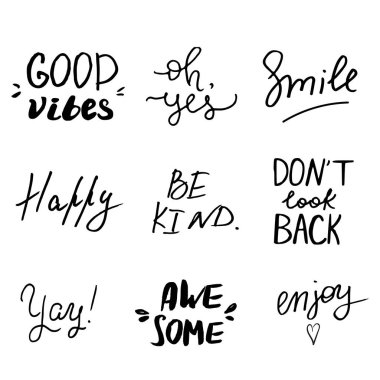 GOOD
vibes
oh,
yes
Smile
Happy
BE
KIND.
DON'T
look
BACK
Yay!
AWE
SOME
enjoy